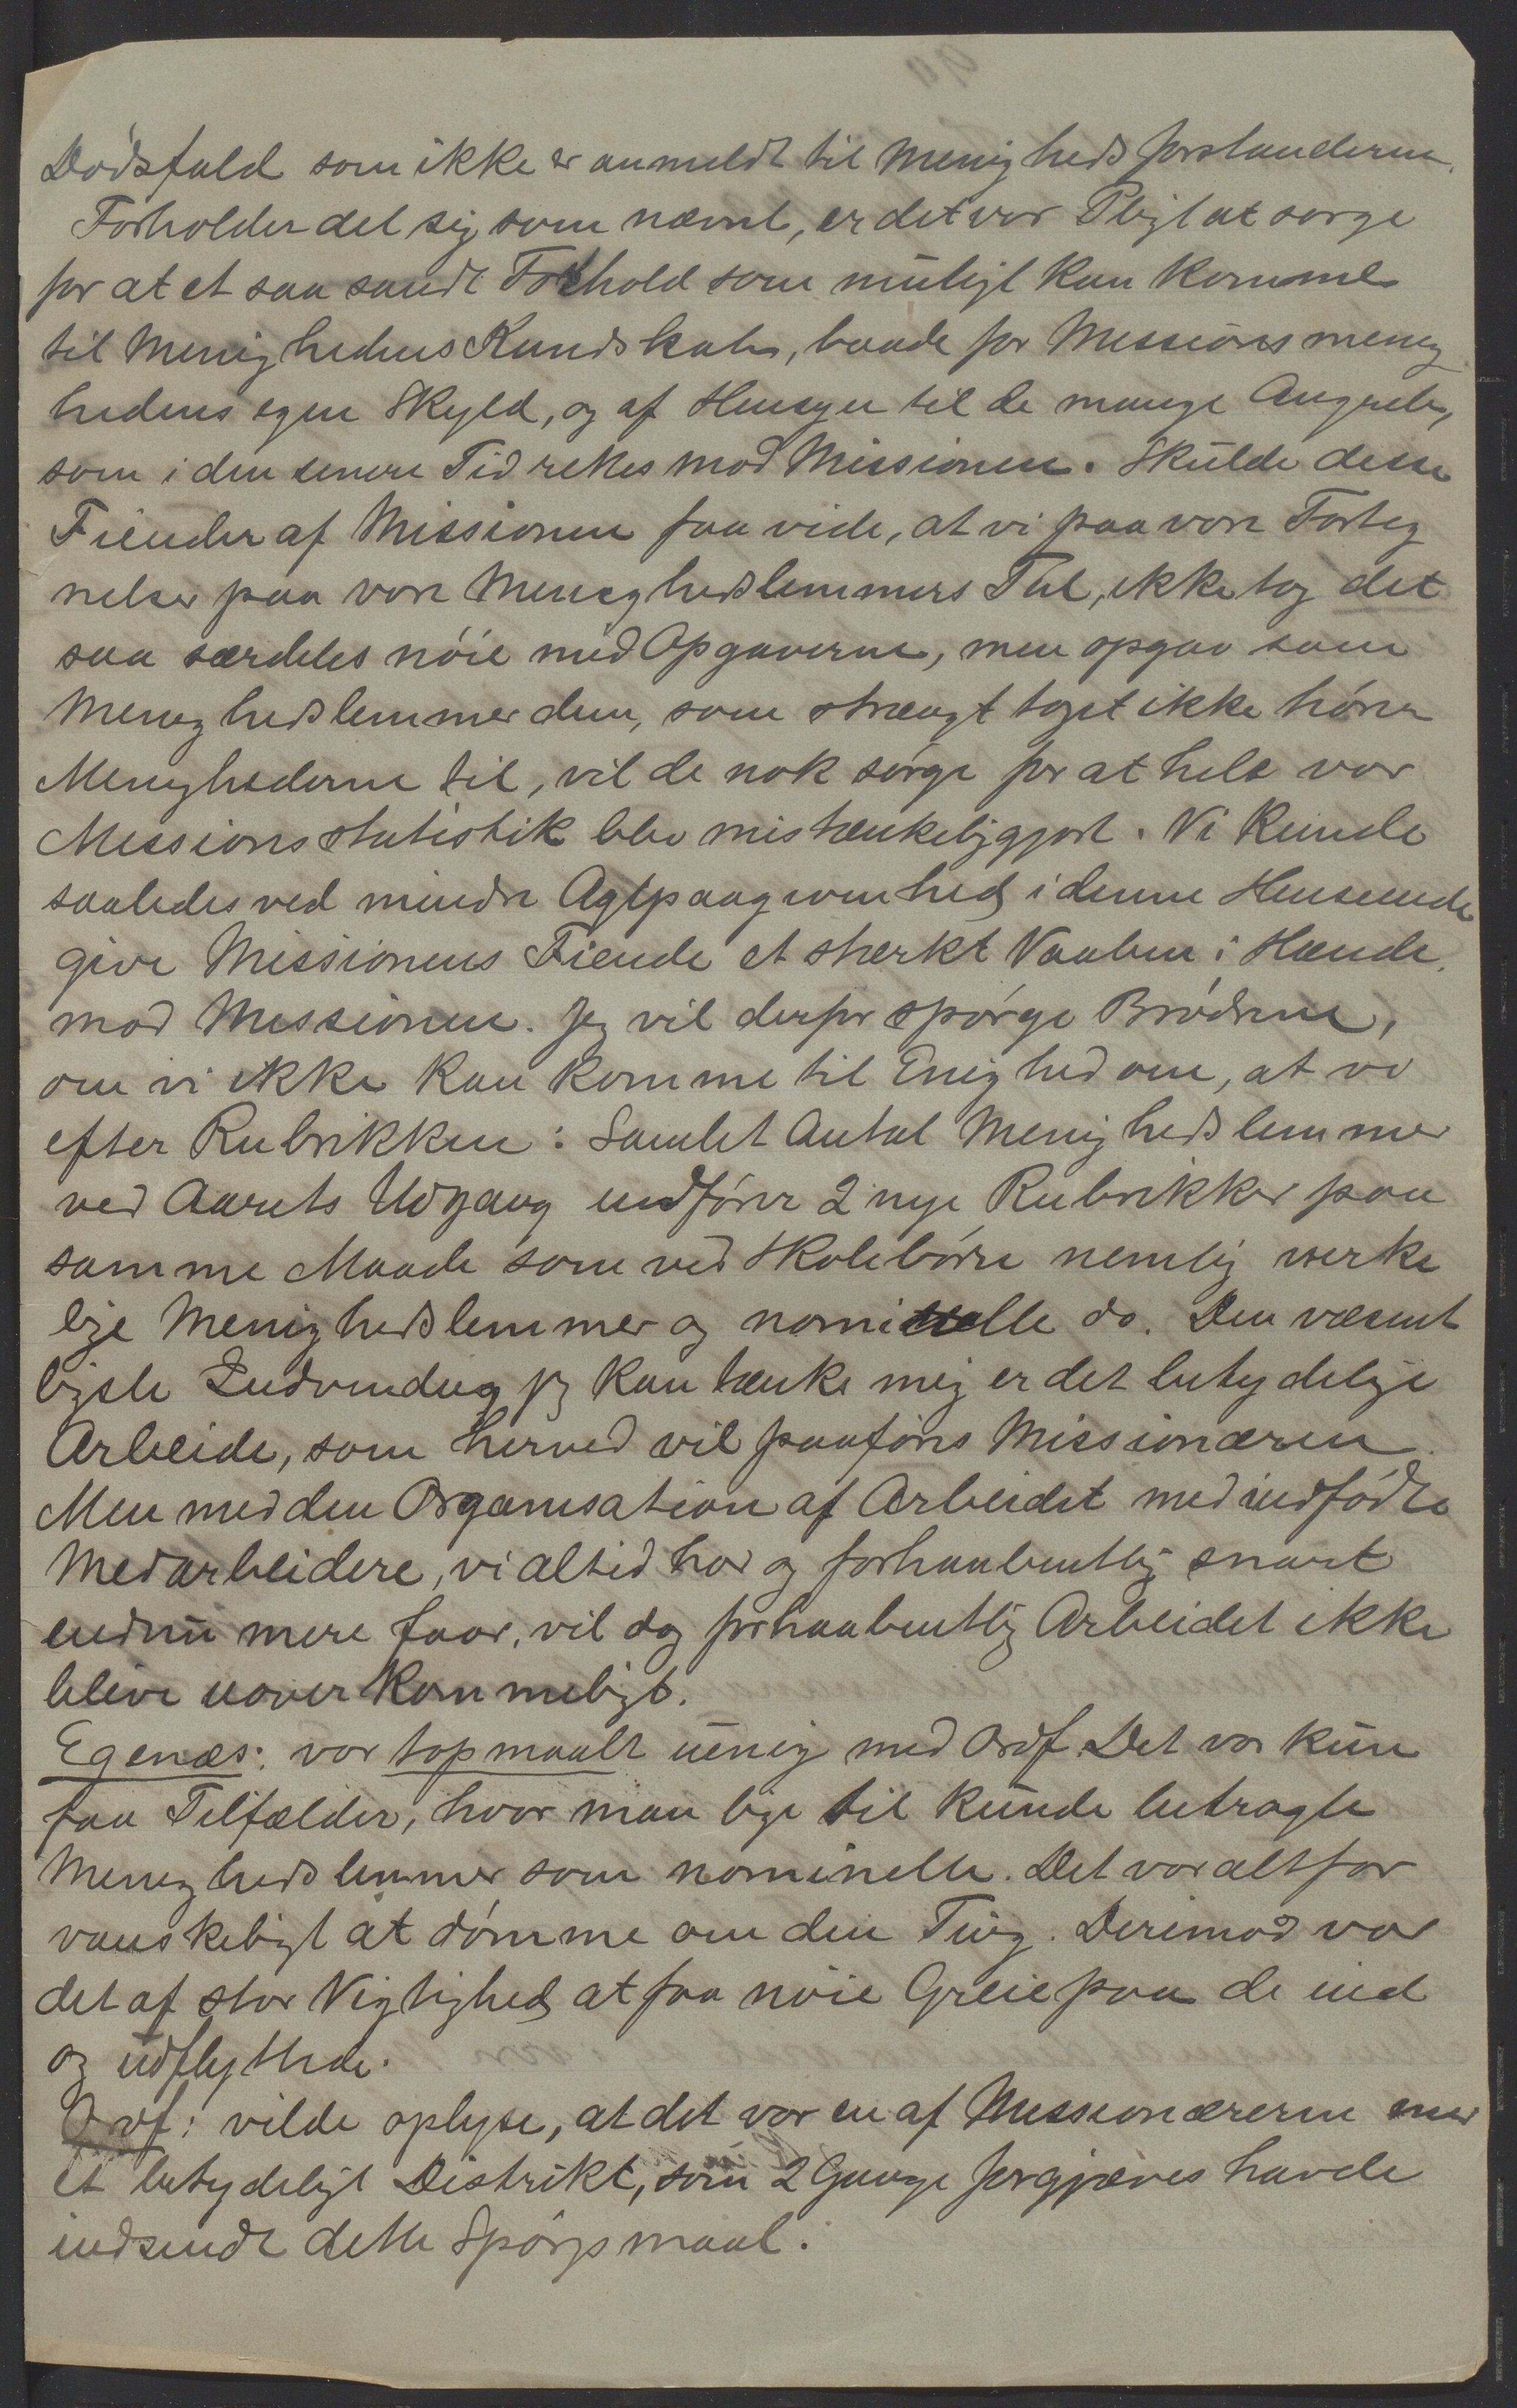 Dødsfald som ikke er anmeldt til Menighedsforstanderne.
Forholder det sig som nævnt, er det vor Pligt at sørge
for at et saa sandt Forhold som muligt kan komme
til Menighedens Kundskab, baade for Missionsmenig
hedens egen Skyld, og af Hensyn til de mange Angreb,
som i den senere Tid rettes mod Missionen. Skulde disse
Fiender af Missionen faa vide, at vi paa vore Forteg
nelser paa vore Menighedslemmers Tal, ikke tog det
saa særdeles nøie med Opgaverne, men opgav som
Menighedslemmer dem, som strængt taget ikke hører
Menighederne til, vil de nok sørge for at hele vor
Missionsstatistik blev mistænkeliggjort. Vi kunde
saaledes ved mindre Agtpaagivenhed i denne Henseende
give Missionens Fiende et stærkt Vaaben i Hænde
mod Missionen. Jeg vil derfor spørge Brødrene,
om vi ikke kan komme til Enighed om, at vi
efter Rubrikken: Samlet Antal Menighedslemmer
ved Aarets Udgang indfører 2 nye Rubrikker paa
samme Maade som ved Skolebørn nemlig verke
lige Menighedslemmer og nominelle do. Den væsent
ligste Indvending jeg kan tænke mig er det betydelige
Arbeide, som herved vil paaføres Missionæren.
Men med den Organisation af Arbeidet med indfødte
Medarbeidere, vi altid har og forhaabentlig snart
endnu mere faar, vil dog forhaabentlig Arbeidet ikke
blive uoverkommeligt.
Egenæs: var topmaalt uenig med Ordf. Det var kun
faa Tilfælder, hvor man lige til kunde betragte
Menighedslemmer som nominelle. Det var altfor
vanskeligt at dømme om den Ting. Derimod var
det af stor Vigtighed at faa nøie Greie paa de ind
og udflyttede.
Ordf: vilde oplyse, at det var en af Missionærerne
et betydeligt Distrikt, som 2 Gange forgjæves havde
indsendt dette Spørgsmaal.